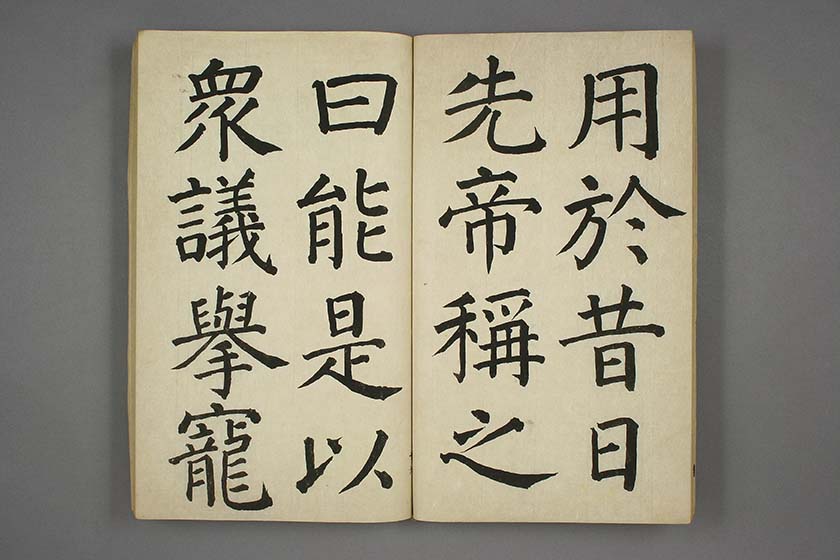 用於昔日
先帝稱之
曰能是以
衆議擧寵